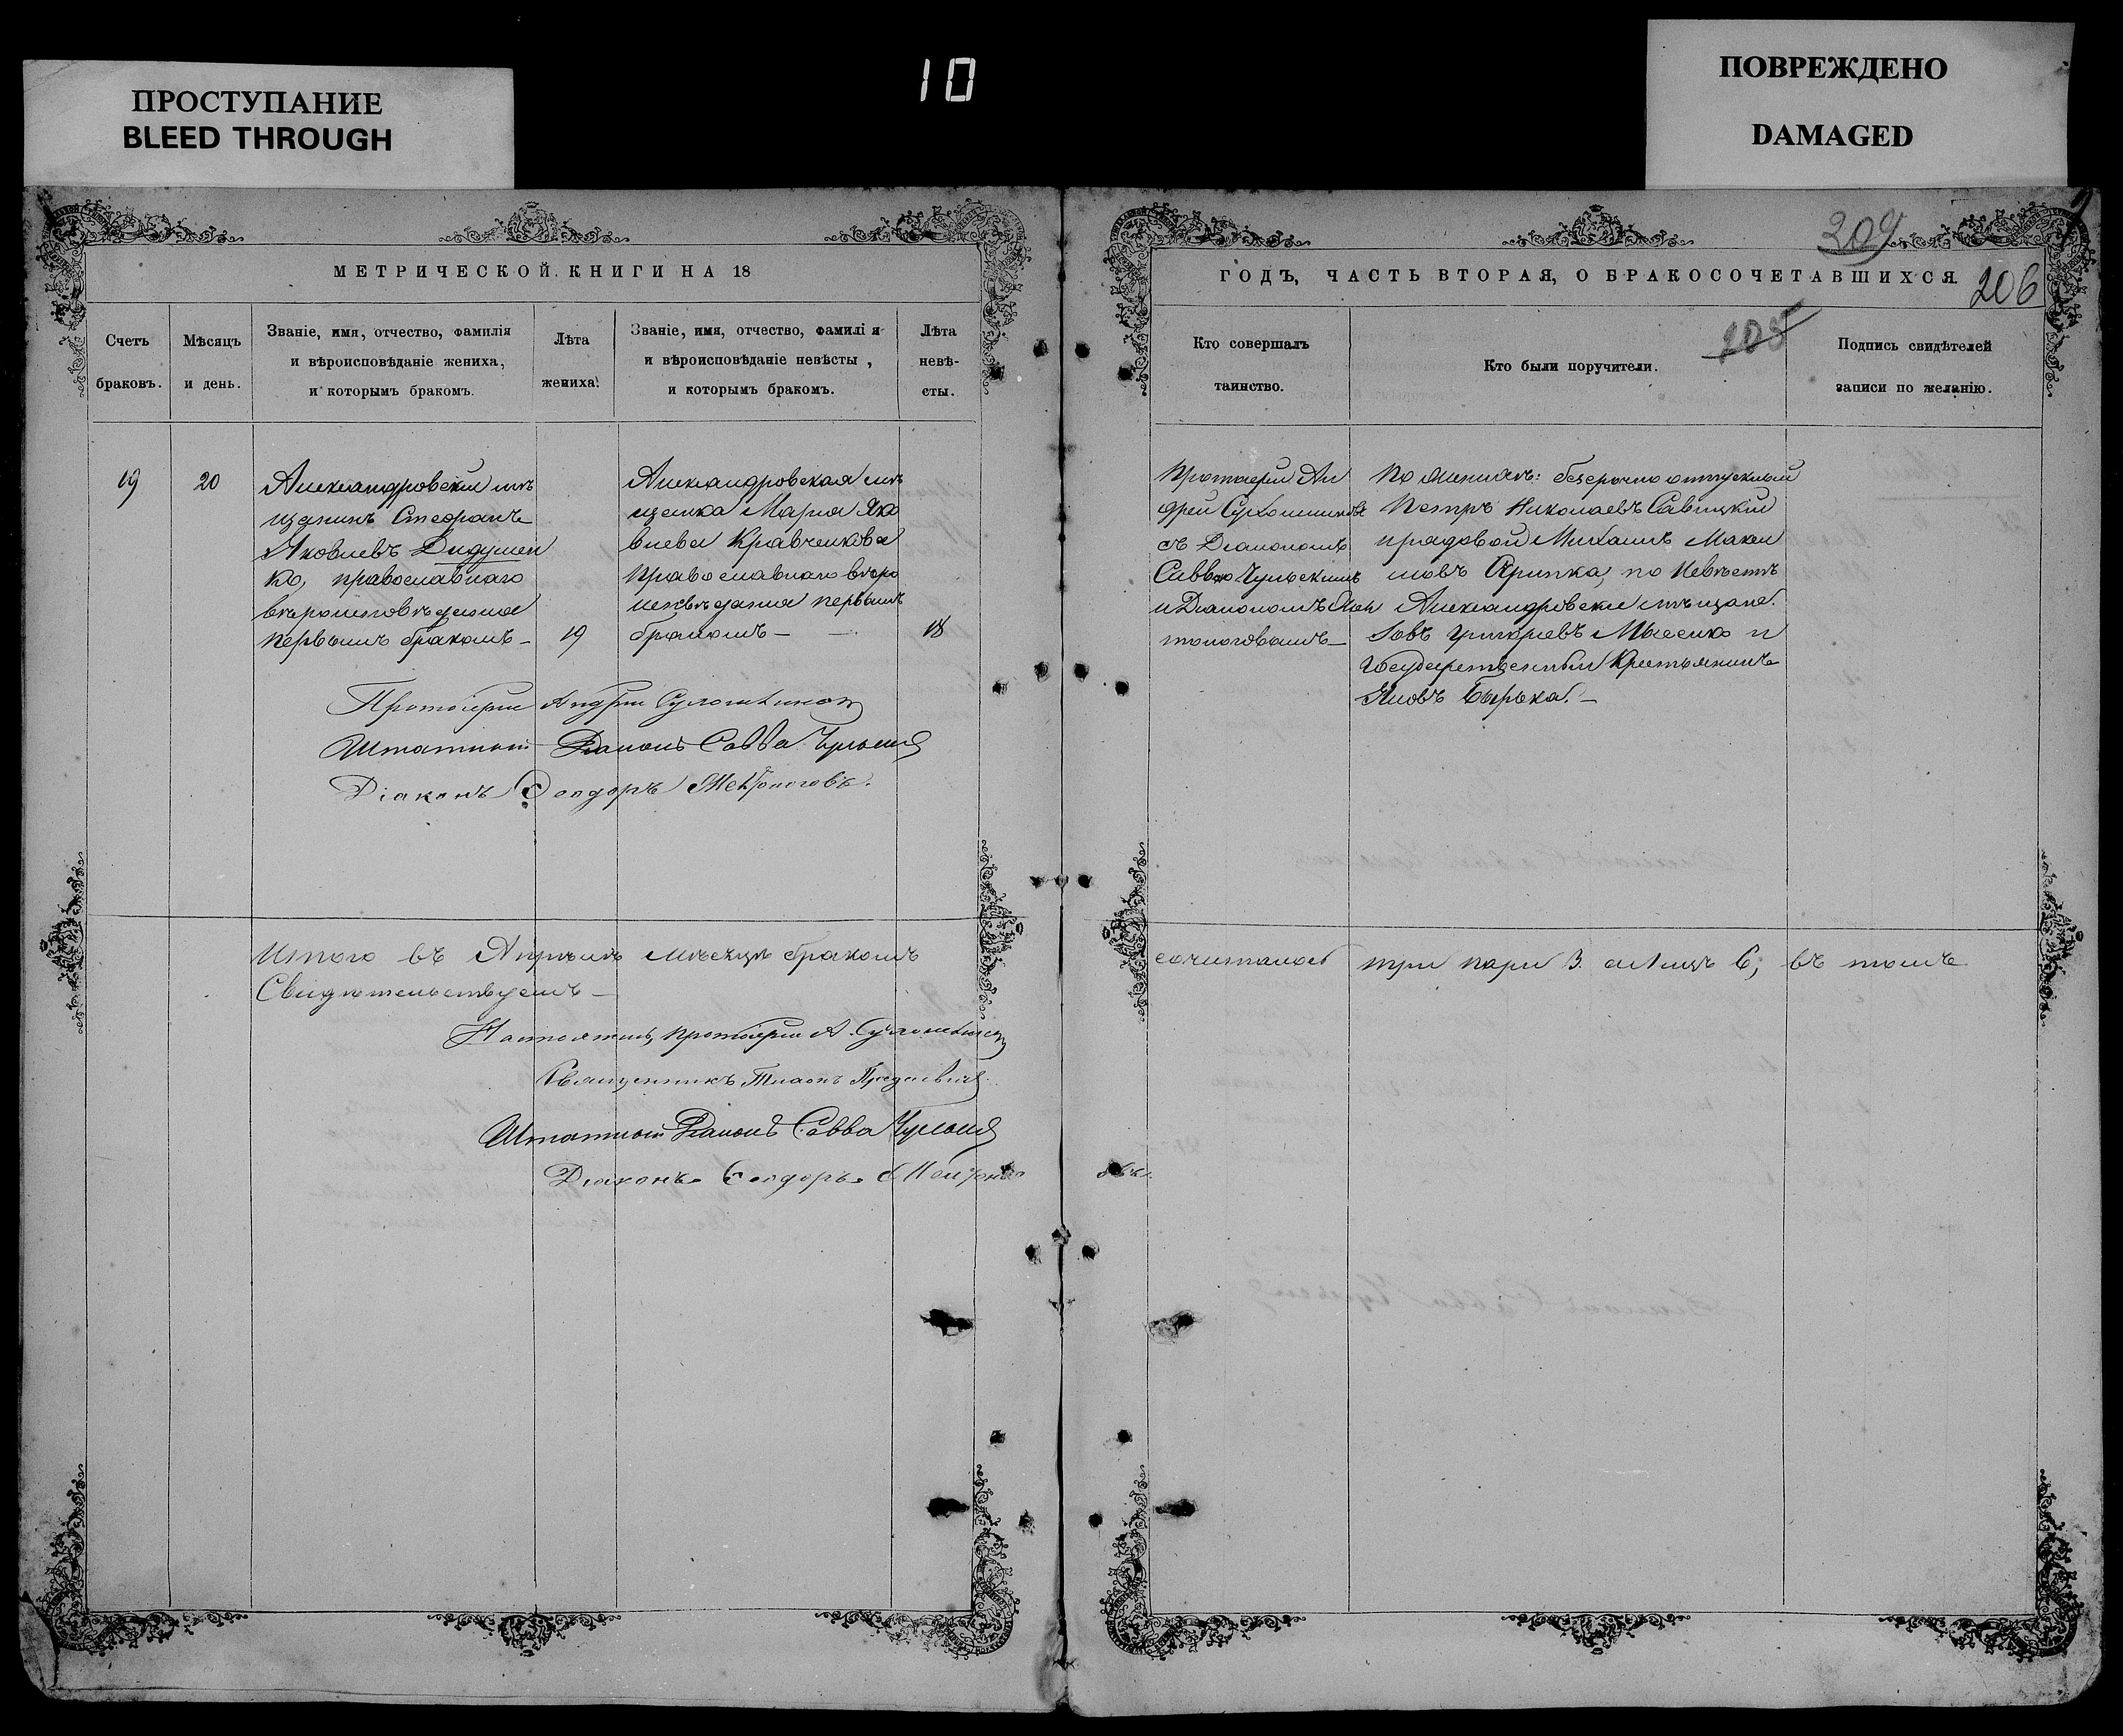 ПРОСТУПАНИЕ
BLEED THROUGH
10
ПОВРЕЖДЕНО
DAMAGED
МЕТРИЧЕСКОЙ КНИГИ НА 18
Счетъ браковъ.
Мѣсяцъ и день.
Званіе, имя, отчество, фамилія
и вѣроисповѣданіе жениха,
и которымъ бракомъ.
Лѣта жениха.
Званіе, имя, отчество, фамилія
и вѣроисповѣданіе невѣсты,
и которымъ бракомъ.
Лѣта невѣ-
сты.
19
20
Александровскій мѣ
щанинъ Стефанъ
Яковлевъ Дидушен
ко, православнаго
вѣроисповѣданія
первымъ бракомъ –
19
Александровская мѣ
щанка Марія Яко
влева Кравченкова
православнаго вѣро
исповѣданія первымъ
бракомъ –
18
Протоіерей Андрей Сухомлиновъ
Штатный Діаконъ Савва
Діаконъ Ѳеодоръ
Итого въ Апрѣлѣ мѣсяцѣ бракомъ
Свидѣтельствуемъ –
Настоятель, протоіерей А. Сухомлиновъ
Священникъ
Штатный Діаконъ Савва
Діаконъ Ѳеодоръ
209
ГОДЪ, ЧАСТЬ ВТОРАЯ, О БРАКОСОЧЕТАВШИХСЯ.
206
205
Кто совершалъ
таинство.
Кто были поручители.
Подпись свидѣтелей
записи по желанію.
Протоіерей Ан
дрей Сухомлиновъ
съ Діакономъ
Саввою
и Діакономъ
По женихѣ: безсрочно отпускной
Петръ Николаевъ Савицкій
и рядовой Михаилъ Макси
мовъ по невѣстѣ
Александровскіе мѣщане.
Іовъ Григорьевъ и
Государственный Крестьянинъ
Яковъ
сочеталось три пары 3. а лицъ 6, въ томъ